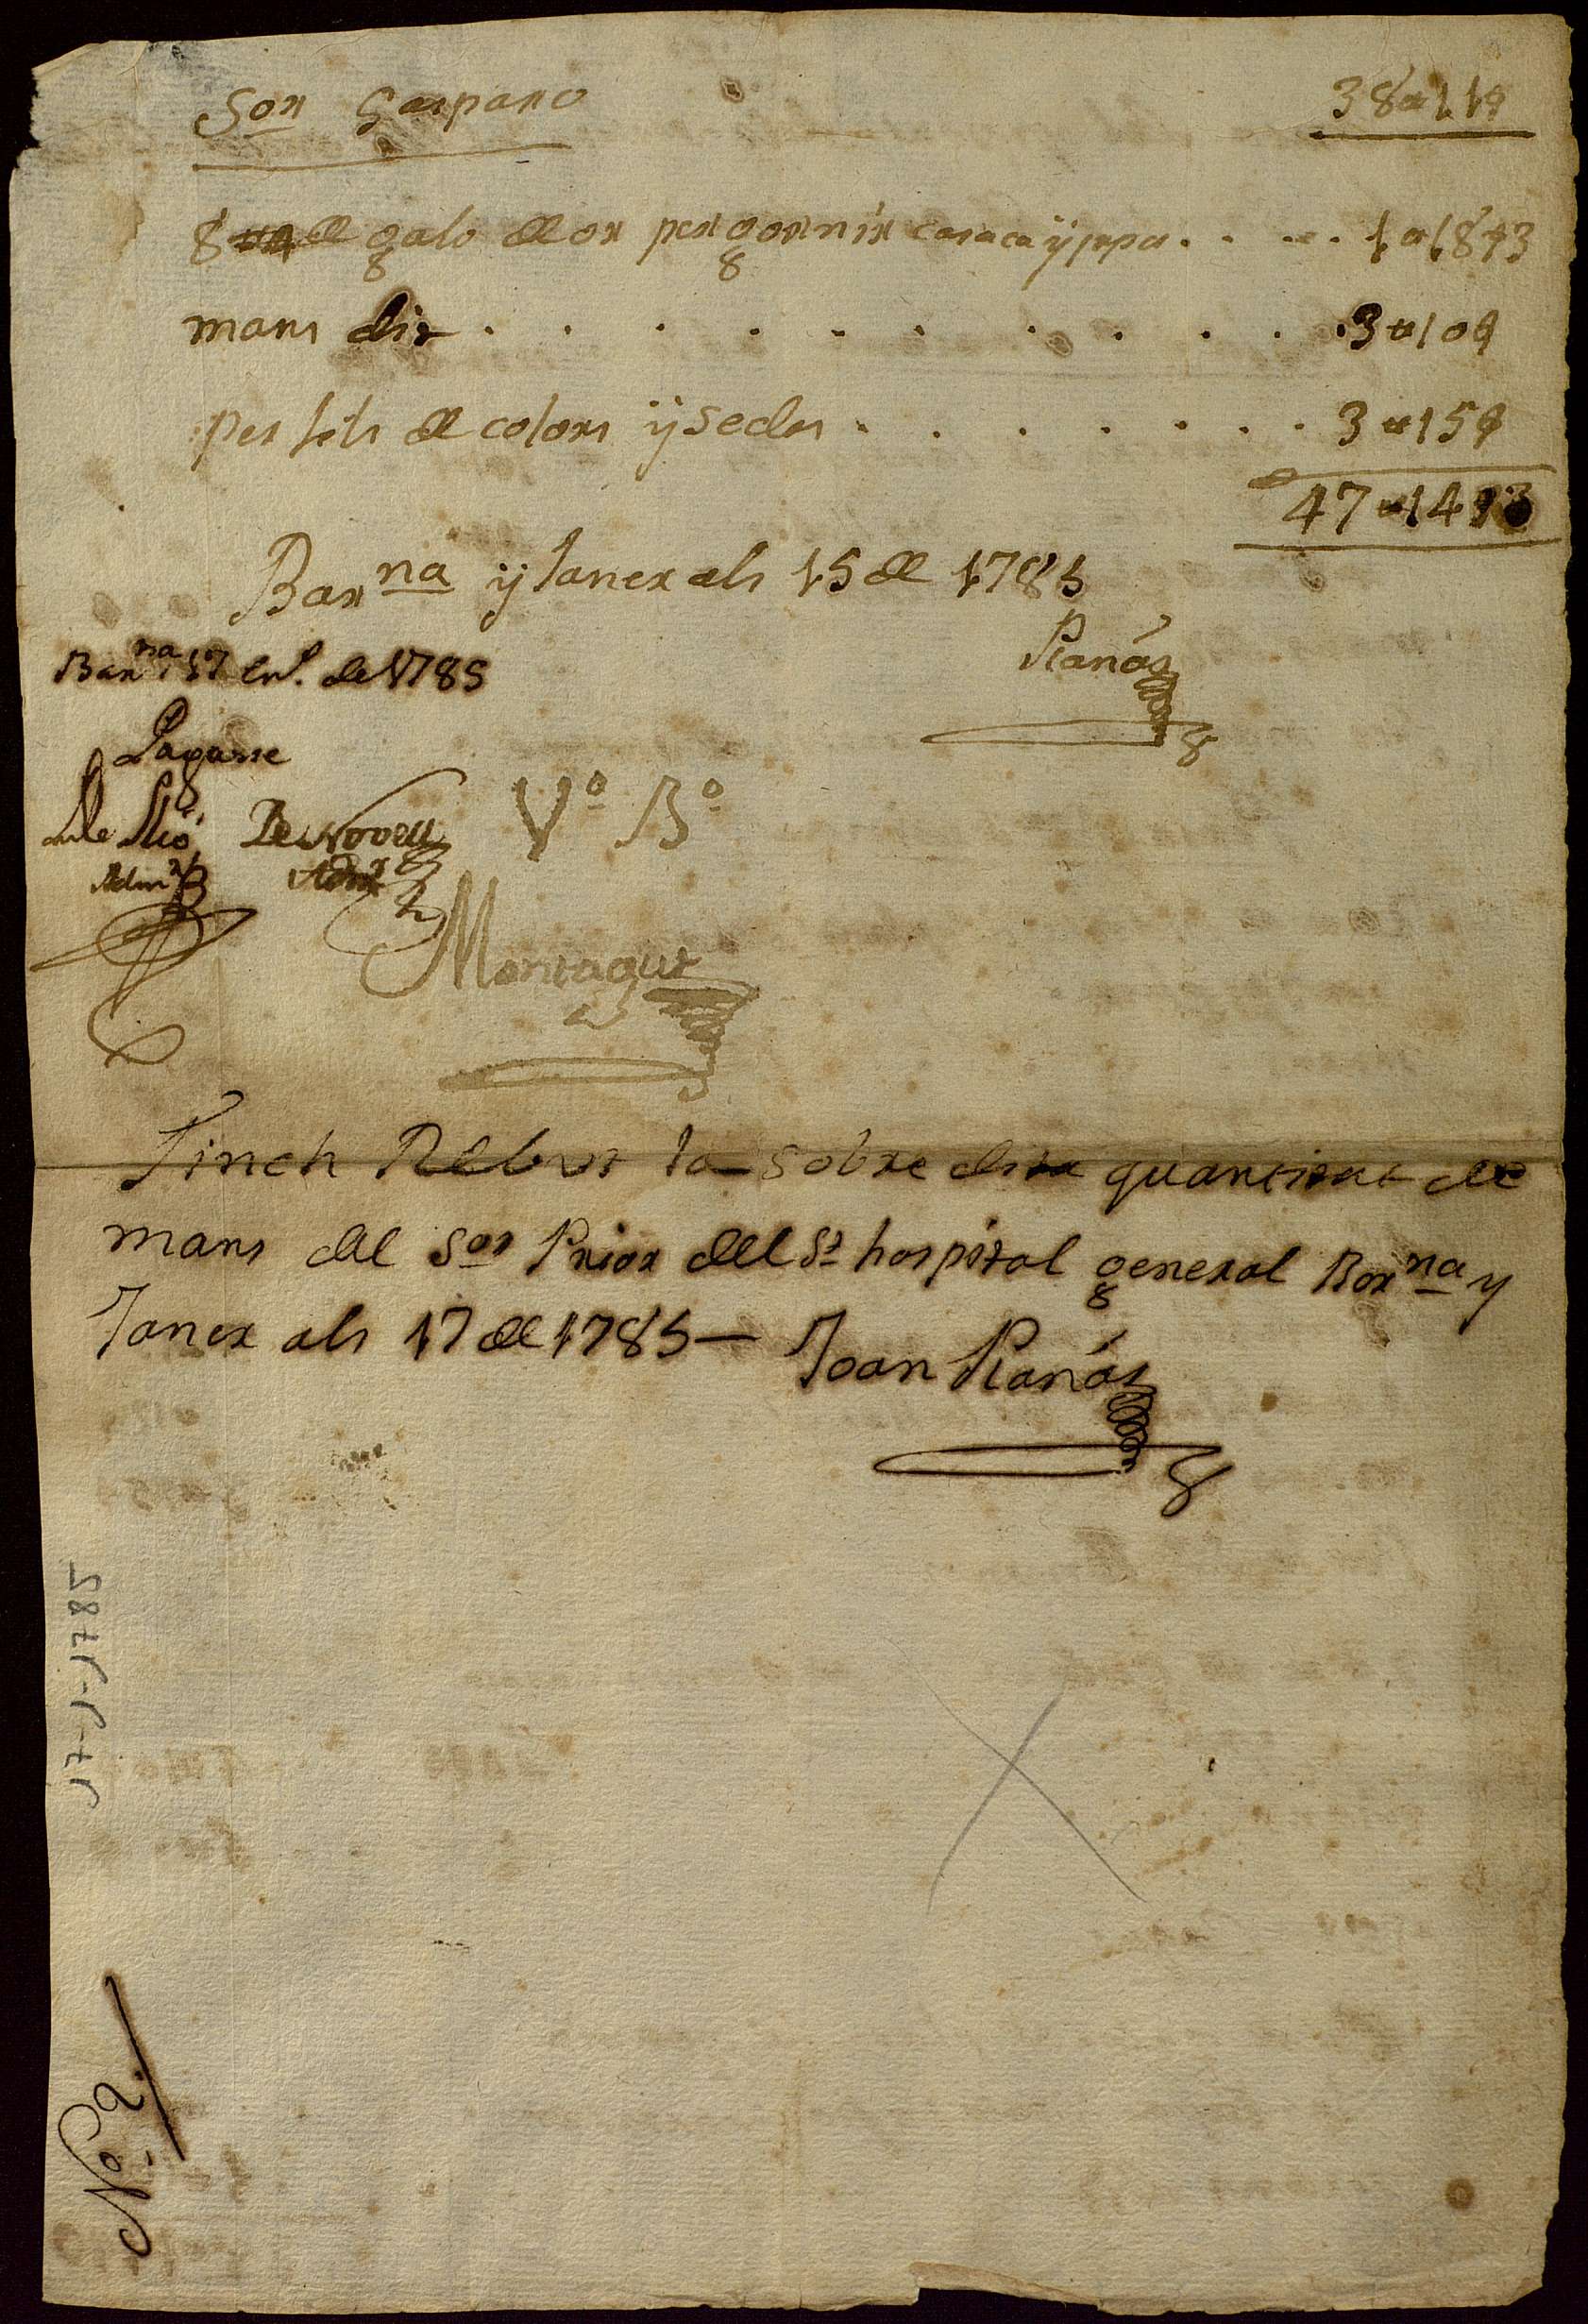 Sor Gasparo 38 ₶ 11 ș
de galo de or per gornir casaca y jupa . . . . 1 ₶ 18 ș 3
mans dit . . . . . . . . . . 3 ₶ 10 ș
per fils de colors ÿ sedas . . . . . . . 3 ₶ 15 ș
47 ₶ 14 ș 3
Barna ÿ Janer als 15 de 1785
Planás
Barna 17 en.º de 1785
Paguese
De Novell
Admr Admr
Vº Bº
Montagut
Tinch Rebut la sobre dita quantitat de
mans del Sor Prior del St hospital general Barna y
Janer als 17 de 1785 — Joan Planás
17-1-1785
Nº 2.